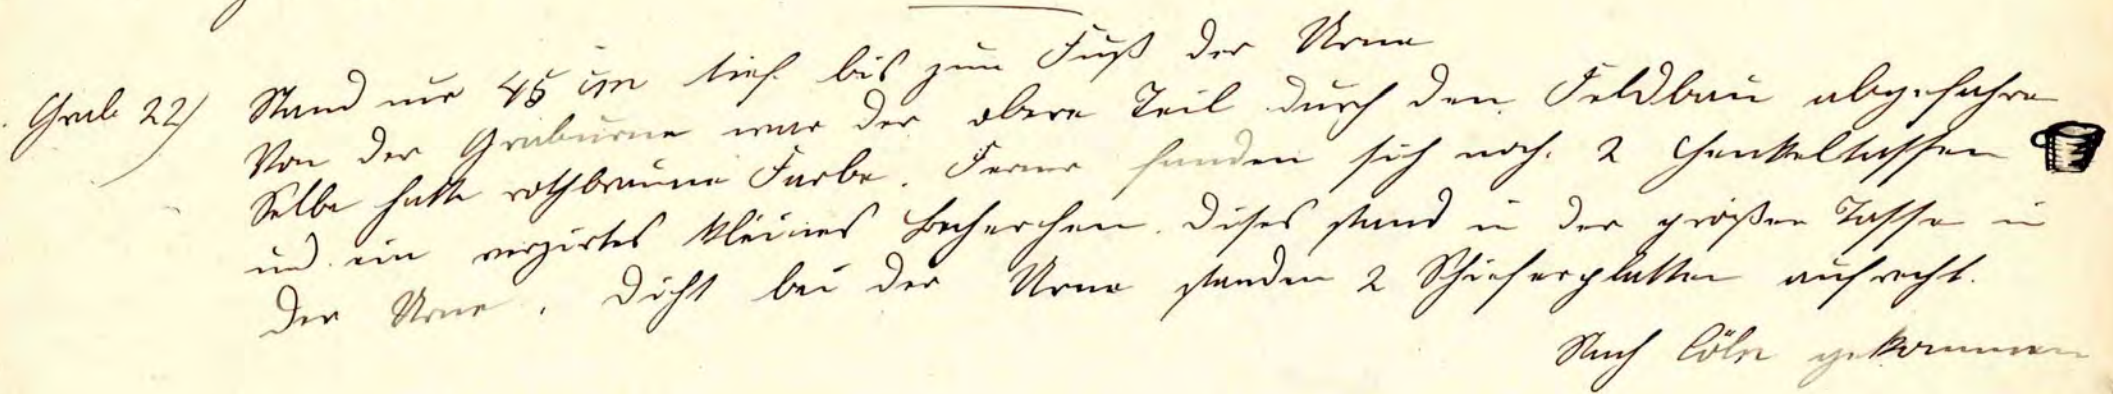 Grab 22) Stand nur 45 cm tief bis zum Fuß der Urne
Von der Graburne war der obere Teil durch den Feldbau abgefahren
Selbe hatte rothbraune Farbe. Ferner fanden sich noch 2 Henkeltassen
und ein verzirtes kleines Becherchen. Dises stand in der großen Tasse in
der Urne. Dicht bei der Urne standen 2 Schieferplatten aufrecht.
Nach Cöln gekommen